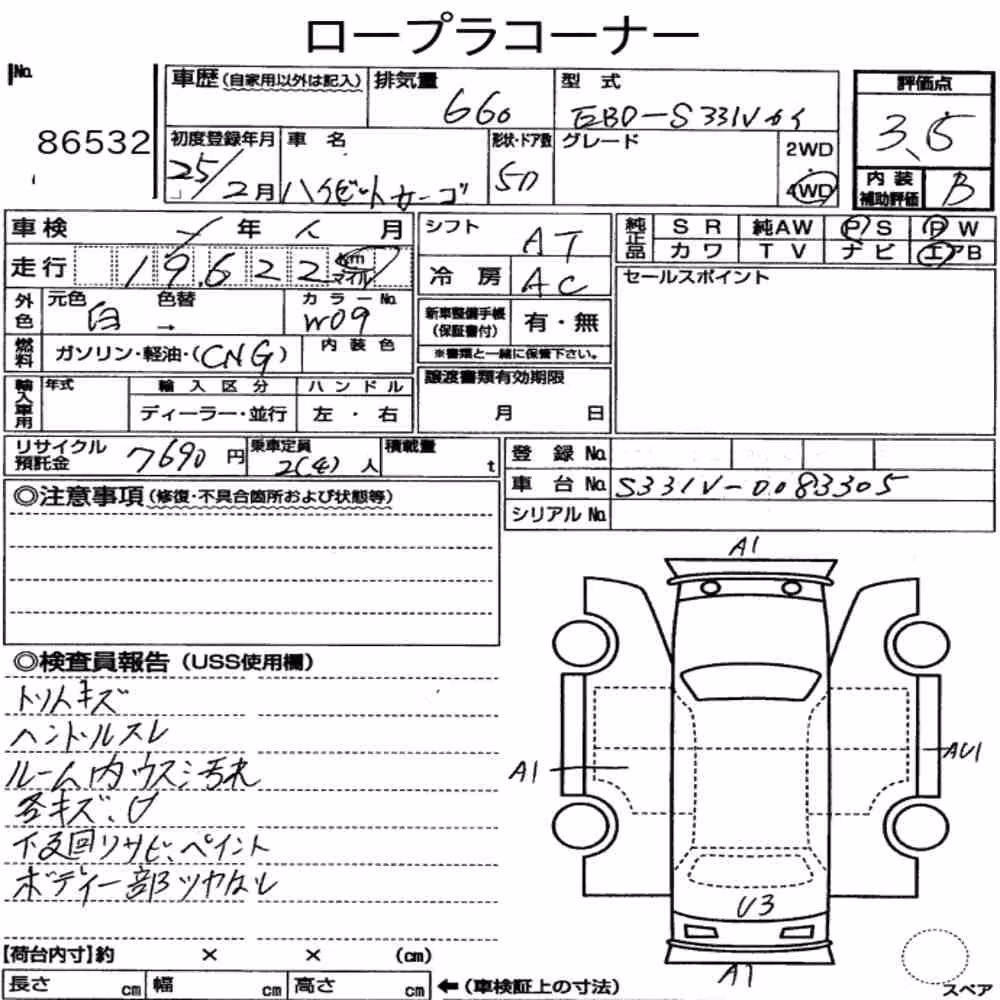 ロープラコーナー
No.
86532
車歴(自家用以外は記入)
排気量
660
型式
EBD-S331Vカイ
評価点
3.5
初度登録年月
25/2月
車名
ハイゼットカーゴ
形状・ドア数
5D
グレード
2WD
4WD
内装
補助評価
B
車検
年 月
シフト
AT
純正品
SR
純AW
PS
PW
カワ
TV
ナビ
エアB
走行
19,622
km
マイル
冷房
AC
セールスポイント
外色
元色
白
色替
→
カラーNo.
W09
新車整備手帳
(保証書付)
有・無
※書類と一緒に保管下さい。
燃料
ガソリン・軽油・(CNG)
内装色
輸入車用
年式
輸入区分
ハンドル
ディーラー・並行
左・右
譲渡書類有効期限
月 日
リサイクル
預託金
7690円
乗車定員
2(4)人
積載量
t
登録No.
車台No.
S331V-0083305
シリアルNo.
◎注意事項(修復・不具合箇所および状態等)
◎検査員報告(USS使用欄)
トリムキズ
ハンドルスレ
ルーム内ウスミ汚れ
各キズ、U
下廻リサビ、ペイント
ボディー部ツヤなし
A1
A1
AU1
U3
A1
スペア
【荷台内寸】約 × × (cm)
長さ cm
幅 cm
高さ cm
←(車検証上の寸法)